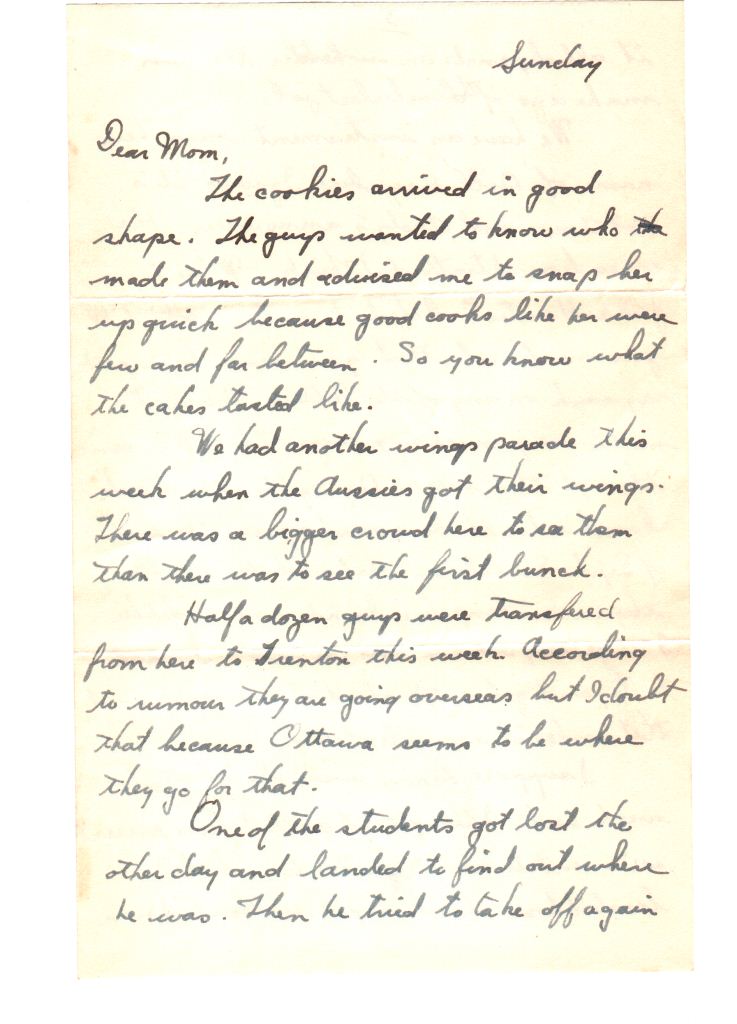 Sunday
Dear Mom,
The cookies arrived in good
shape. The guys wanted to know who
made them and advised me to snap her
up quick because good cooks like her were
few and far between. So you know what
the cakes tasted like.
We had another wings parade this
week when the Aussies got their wings.
There was a bigger crowd here to see them
than there was to see the first bunch.
Half a dozen guys were transfered
from here to Trenton this week. According
to rumour they are going overseas but I doubt
that because Ottawa seems to be where
they go for that.
One of the students got lost the
other day and landed to find out where
he was. Then he tried to take off again